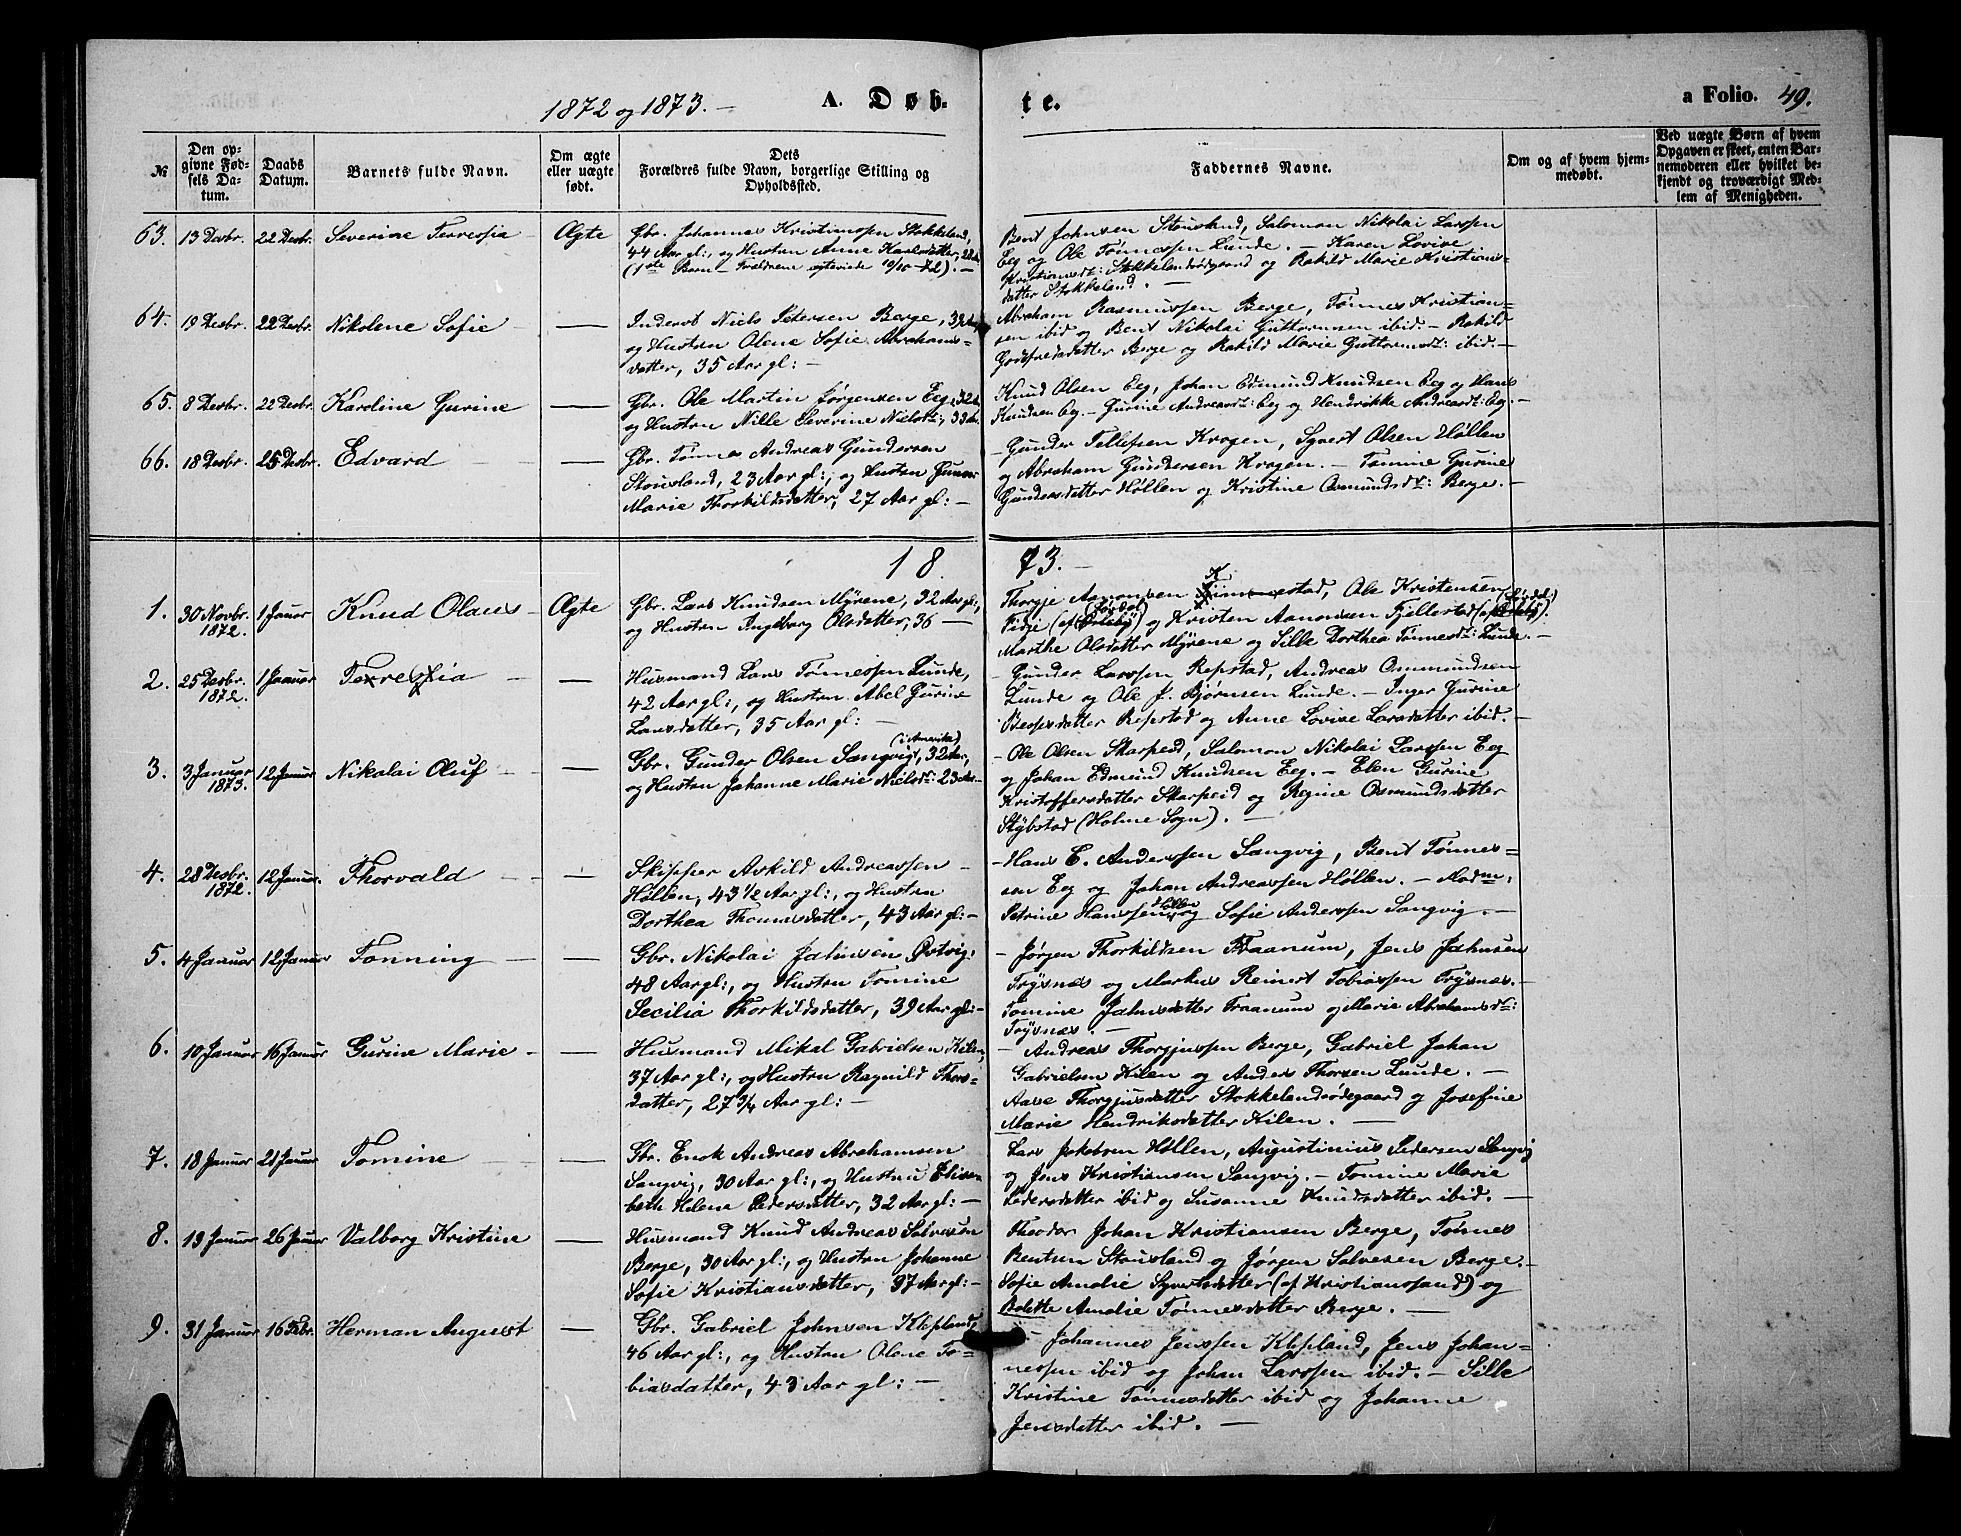 1872 og 1873. —
A. Døb-
te.
a Folio. 49.
№
Den op-
givne Fød-
sels Da-
tum.
Daabs
Datum.
Barnets fulde Navn.
Om ægte
eller uægte
født.
Dets
Forældres fulde Navn, borgerlige Stilling og
Opholdssted.
Faddernes Navne.
Om og af hvem hjem-
medøbt.
Ved uægte Børn af hvem
Opgaven er skeet, enten Bar-
nemoderen eller hvilket be-
kjendt og troværdigt Med-
lem af Menigheden.
63. 13 Desbr. 22 Desbr. Severine Terresia — Ægte
Gbr. Johannes Kristiansen Stokkeland,
44 Aar gl:, og Hustru Anne Karlsdatter,
(1ste Barn — Forældrene egteviede 10/10 72). —
Bent Johnsen Stousland, Salomon Nikolai Larssen
Eeg og Ole Tønnessen Lunde. — Karen Lovise
Kristiansdt: Stokkelandsødegaard og Rakild Marie Kristians-
datter Stokkeland. —
64. 19 Desbr. 22 Desbr. Nikolene Sofie — —
Inderst Niels Petersen Berge,
og Hustru Olene Sofie Abrahams-
datter, 35 Aar gl: —
Abraham Rasmussen Berge, Tønnes Kristian-
sen ibid og Bent Nikolai Guttormsen ibid. — Rakild
Godtfredsdatter Berge og Rakild Marie Guttormsdt: ibid. —
65. 8 Desbr. 22 Desbr. Karoline Gurine —
Gbr. Ole Martin Jørgensen Eeg, 32
og Hustru Nille Severine Nielsdt:, 33 Aar.
Knud Olsen Eeg, Johan Edmund Knudsen Eeg og Hans
Knudsen Eeg. — Gurine Andreasdt: Eeg og Hendrikke Andreasdt: Eeg. —
66. 18 Desbr. 25 Desbr. Edvard — —
Gbr. Tønnes Andreas Gundersen
Stousland, 23 Aar gl:, og Hustru Gunvor
Marie Thorkildsdatter, 27 Aar gl: —
— Gunder Tellefsen Krogen, Syvert Olsen Høllen
og Abraham Gundersen Krogen. — Tomine Gurine
Gundersdatter Høllen og Kristine Osmundsdt: Berge. —
1873. —
1. 30 Novbr. 1872. 1 Januar Knud Olaus — Ægte
Gbr. Lars Knudsen Myrene, 32 Aar gl:,
og Hustru Ingeborg Olsdatter, 36 —
Thorgje Aanonsen Ole Kristensen
Fidje og Kristen Aanonsen Fjellestad
Marthe Olsdatter Myrene og Sille Dorthea Tønnesdt: Lunde. —
2. 25 Desbr. 1872. 1 Januar — —
Husmand Lars Tønnessen Lunde,
42 Aar gl:, og Hustru Abel Gurine
Larsdatter, 35 Aar gl: —
— Gunder Larssen Repstad, Andreas Osmundsen
Lunde og Ole J. Bjørnsen Lunde. — Inger Gurine
Repstad og Anne Lovise Larsdatter ibid. —
3. 3 Januar 1873. 12 Januar Nikolai Oluf — —
Gbr. Gunder Olsen Sangvig (i Amerika), 32 Aar,
og Hustru Johanne Marie Nielsdt: 23 Aar —
— Ole Olsen Skarpeid, Salomon Nikolai Larssen Eeg
og Johan Edmund Knudsen Eeg. — Elen Gurine
Kristoffersdatter Skarpeid og Regine Osmundsdatter
Støbstad (Holme Sogn). —
4. 28 Desbr. 1872. 12 Januar. Thorvald — —
Skipper Askild Andreassen
Høllen, 43 1/2 Aar gl:, og Hustru
Dorthea Thomasdatter, 43 Aar gl: —
— Hans E. Anderssen Sangvig, Bent Tønnes-
sen Eeg og Johan Andreassen Høllen. — Madm:
Petrine Hanssen Høllen og Sofie Anderssen Sangvig. —
5. 4 Januar 12 Januar Tønning — —
Gbr. Nikolai Jahnsen Østvig,
48 Aar gl:, og Hustru Tomine
Secilia Thorkildsdatter, 39 Aar gl: —
— Jørgen Thorkildsen Traanum, Jens Jahnsen
Trysnæs og Markus Reinert Tobiassen Trysnæs. —
Tomine Jahnsdatter Traanum og Marie Abrahamsdt:
Trysnæs. —
6. 10 Januar 16 Januar Gurine Marie — —
Husmand Mikal Gabrielsen Kilen,
37 Aar gl:, og Hustru Ragnild Thors-
datter, 27 3/4 Aar gl: —
— Andreas Thorgjussen Berge, Gabriel Johan
Gabrielsen Kilen og Anders Thorsen Lunde. —
Aase Thorgjusdatter Stokkelandsødegaard og Josefine
Marie Hendriksdatter Kilen. —
7. 18 Januar 21 Januar Tomine — —
Gbr. Enok Andreas Abrahamsen
Sangvig, 30 Aar gl:, og Hustru Elisa-
beth Helena Pedersdatter, 32 Aar gl: —
Lars Jakobsen Høllen, Augustinius Pedersen Sangvig
og Jens Kristiansen Sangvig. — Tomine Marie
Pedersdatter ibid og Susanne Knudsdatter ibid. —
8. 19 Januar 26 Januar Valborg Kristine —
Husmand Knud Andreas Salvesen
Berge, 30 Aar gl:, og Hustru Johanne
Sofie Kristiansdatter, 37 Aar gl: —
Theodor Johan Kristiansen Berge, Tønnes
Bentsen Stousland og Jørgen Salvesen Berge. —
Sofie Amalie Syvertsdatter (af Kristianssand) og
Bolette Amalie Tønnesdatter Berge. —
9. 31 Januar 16 Febr. Herman August —
Gbr. Gabriel Johnsen Klepland,
46 Aar gl:, og Hustru Olene To-
biasdatter, 43 Aar gl: —
Johannes Jenssen Klepland, Jens Johan-
nessen ibid og Johan Larssen ibid. — Sille
Kristine Tønnesdatter ibid og Johanne
Jensdatter ibid. —